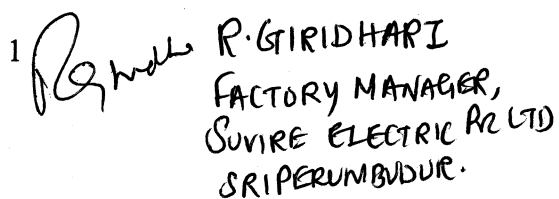 1 R. GIRIDHARI
FACTORY MANAGER,
SUVIRE ELECTRIC Pvt LTD
SRIPERUMBUDUR.